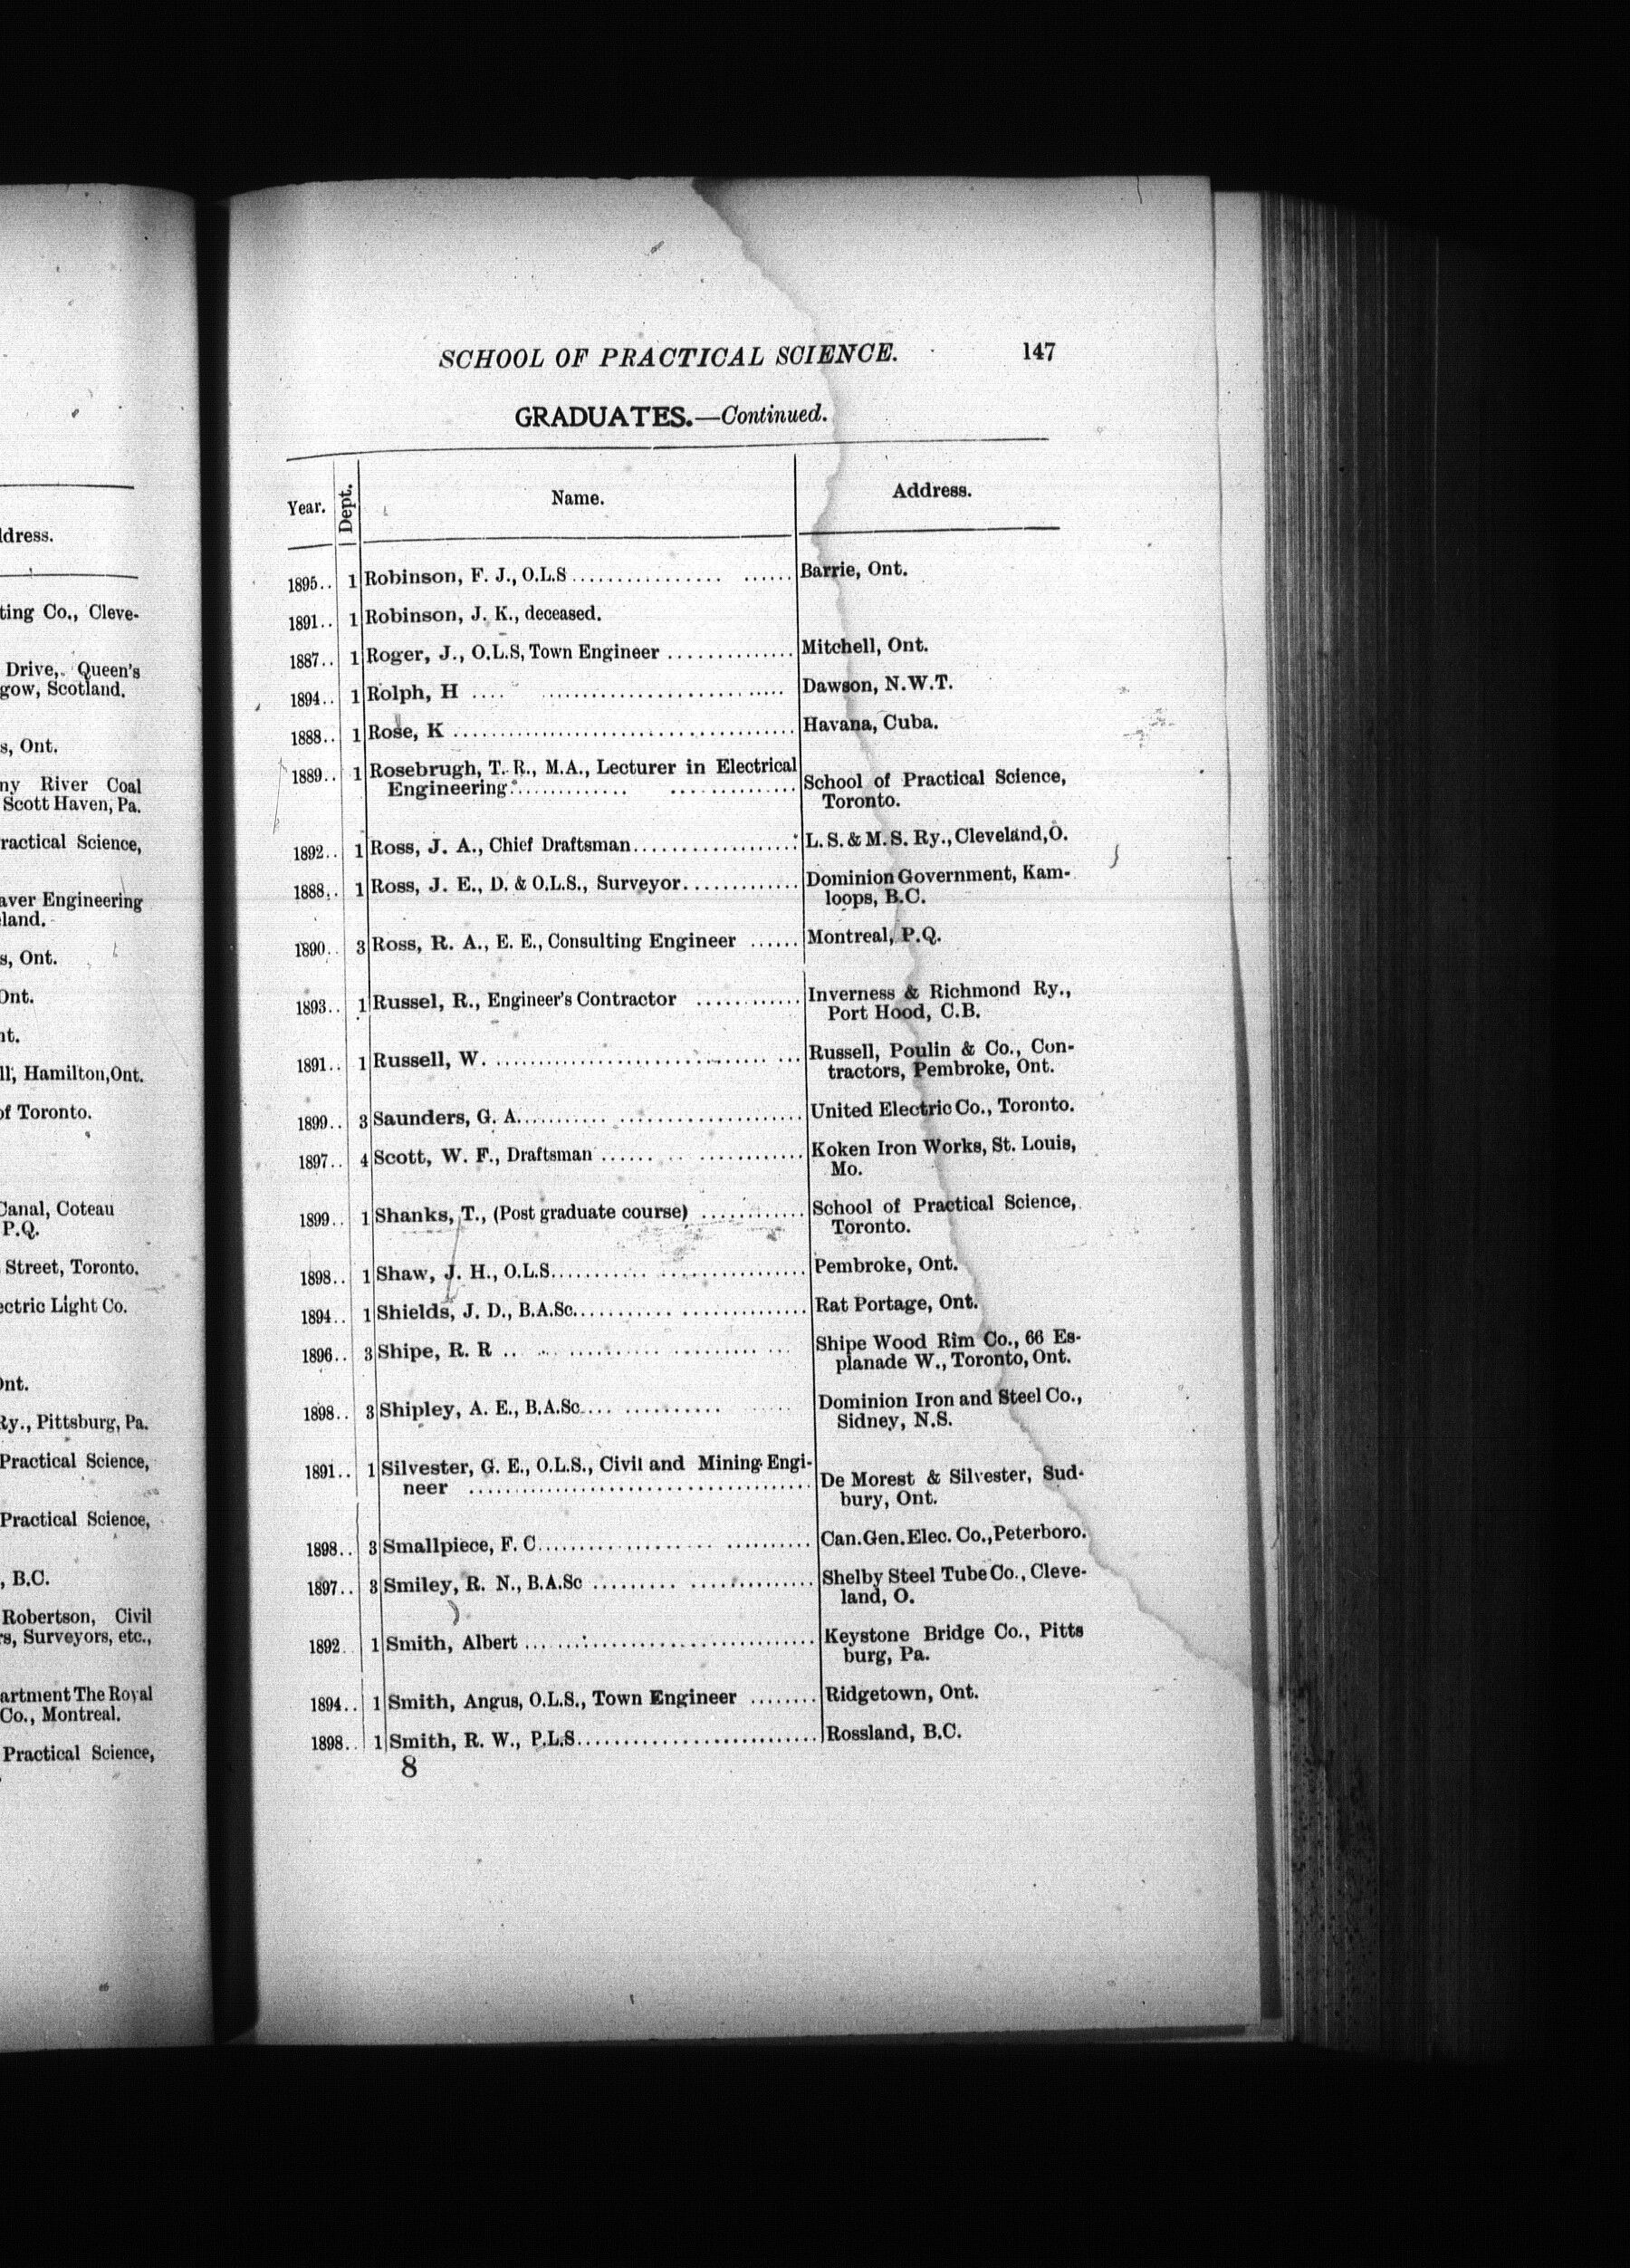 ddress.
ting Co., Cleve-
Drive, Queen's
gow, Scotland.
s, Ont.
ny River Coal
Scott Haven, Pa.
ractical Science,
aver Engineering
land.
s, Ont.
Ont.
nt.
ll, Hamilton, Ont.
of Toronto.
Canal, Coteau
P.Q.
Street, Toronto.
ectric Light Co.
Ont.
Ry., Pittsburg, Pa.
Practical Science,
Practical Science,
, B.C.
Robertson, Civil
rs, Surveyors, etc.,
artment The Royal
Co., Montreal.
Practical Science,
SCHOOL OF PRACTICAL SCIENCE. 147
GRADUATES.—Continued.
Year. Dept. Name. Address.
1895.. 1 Robinson, F. J., O.L.S ...................... Barrie, Ont.
1891.. 1 Robinson, J. K., deceased.
1887.. 1 Roger, J., O.L.S, Town Engineer .............. Mitchell, Ont.
1894.. 1 Rolph, H .... .......................... Dawson, N.W.T.
1888.. 1 Rose, K ...................................... Havana, Cuba.
1889.. 1 Rosebrugh, T. R., M.A., Lecturer in Electrical
Engineering ............. .............. School of Practical Science,
Toronto.
1892.. 1 Ross, J. A., Chief Draftsman.................. L. S. & M. S. Ry., Cleveland, O.
1888.. 1 Ross, J. E., D. & O.L.S., Surveyor............. Dominion Government, Kam-
loops, B.C.
1890.. 3 Ross, R. A., E. E., Consulting Engineer ...... Montreal, P.Q.
1893.. 1 Russel, R., Engineer's Contractor ............ Inverness & Richmond Ry.,
Port Hood, C.B.
1891.. 1 Russell, W. .................................. Russell, Poulin & Co., Con-
tractors, Pembroke, Ont.
1899.. 3 Saunders, G. A.......... ..................... United Electric Co., Toronto.
1897.. 4 Scott, W. F., Draftsman ...... .. ............ Koken Iron Works, St. Louis,
Mo.
1899.. 1 Shanks, T., (Post graduate course) ............ School of Practical Science,
Toronto.
1898.. 1 Shaw, J. H., O.L.S........... ................ Pembroke, Ont.
1894.. 1 Shields, J. D., B.A.Sc........... .............. Rat Portage, Ont.
1896.. 3 Shipe, R. R .. .. .......... .......... ... Shipe Wood Rim Co., 66 Es-
planade W., Toronto, Ont.
1898.. 3 Shipley, A. E., B.A.Sc.... ........... Dominion Iron and Steel Co.,
Sidney, N.S.
1891.. 1 Silvester, G. E., O.L.S., Civil and Mining Engi-
neer ...................................... De Morest & Silvester, Sud-
bury, Ont.
1898.. 3 Smallpiece, F. C.................... .......... Can. Gen. Elec. Co., Peterboro.
1897.. 3 Smiley, R. N., B.A.Sc ......... .............. Shelby Steel Tube Co., Cleve-
land, O.
1892.. 1 Smith, Albert ................................ Keystone Bridge Co., Pitts
burg, Pa.
1894.. 1 Smith, Angus, O.L.S., Town Engineer ........ Ridgetown, Ont.
1898.. 1 Smith, R. W., P.L.S.......................... Rossland, B.C.
8